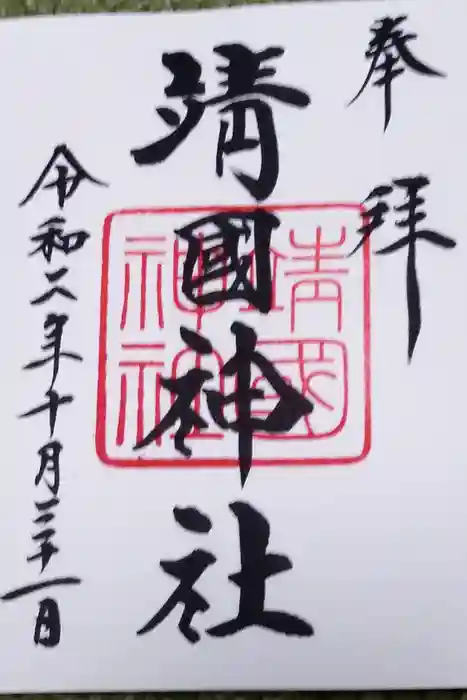 奉拝
靖國神社
令和六年十月三十一日
靖國
神社